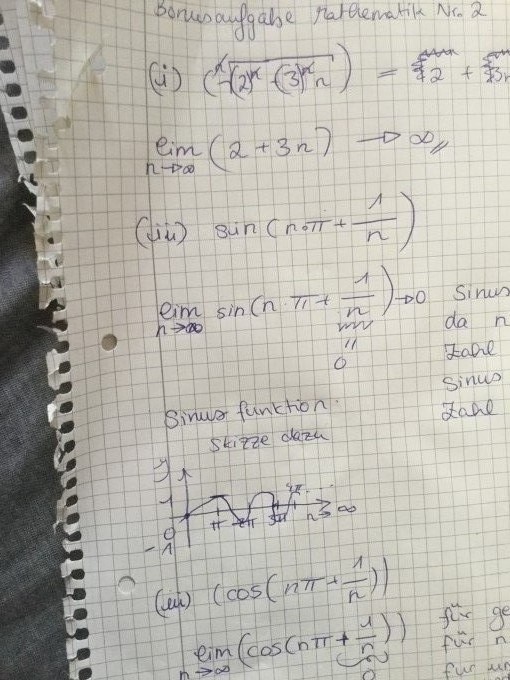 Bonusaufgabe Mathematik Nr. 2
(i)
lim (2 + 3n) → ∞
n→∞
(ii) sin (n·π + 1/n)
lim sin(n·π + 1/n) → 0 Sinus
n→∞ da n
= 0 Zahl
Sinus
Sinus funktion. Zahl
Skizze dazu
y
1
0
-1
π 2π 3π 4π n→∞
(iii) (cos(nπ + 1/n))
lim (cos(nπ + 1/n)) für ge
n→∞ für n
0 für un